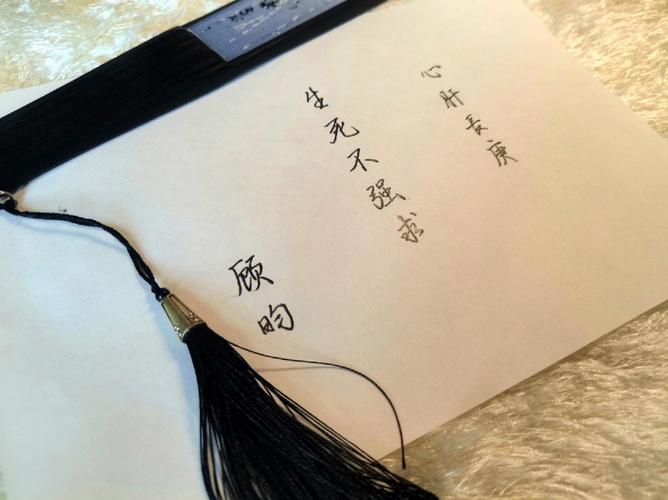 心肝长庚
生死不强求
顾昀